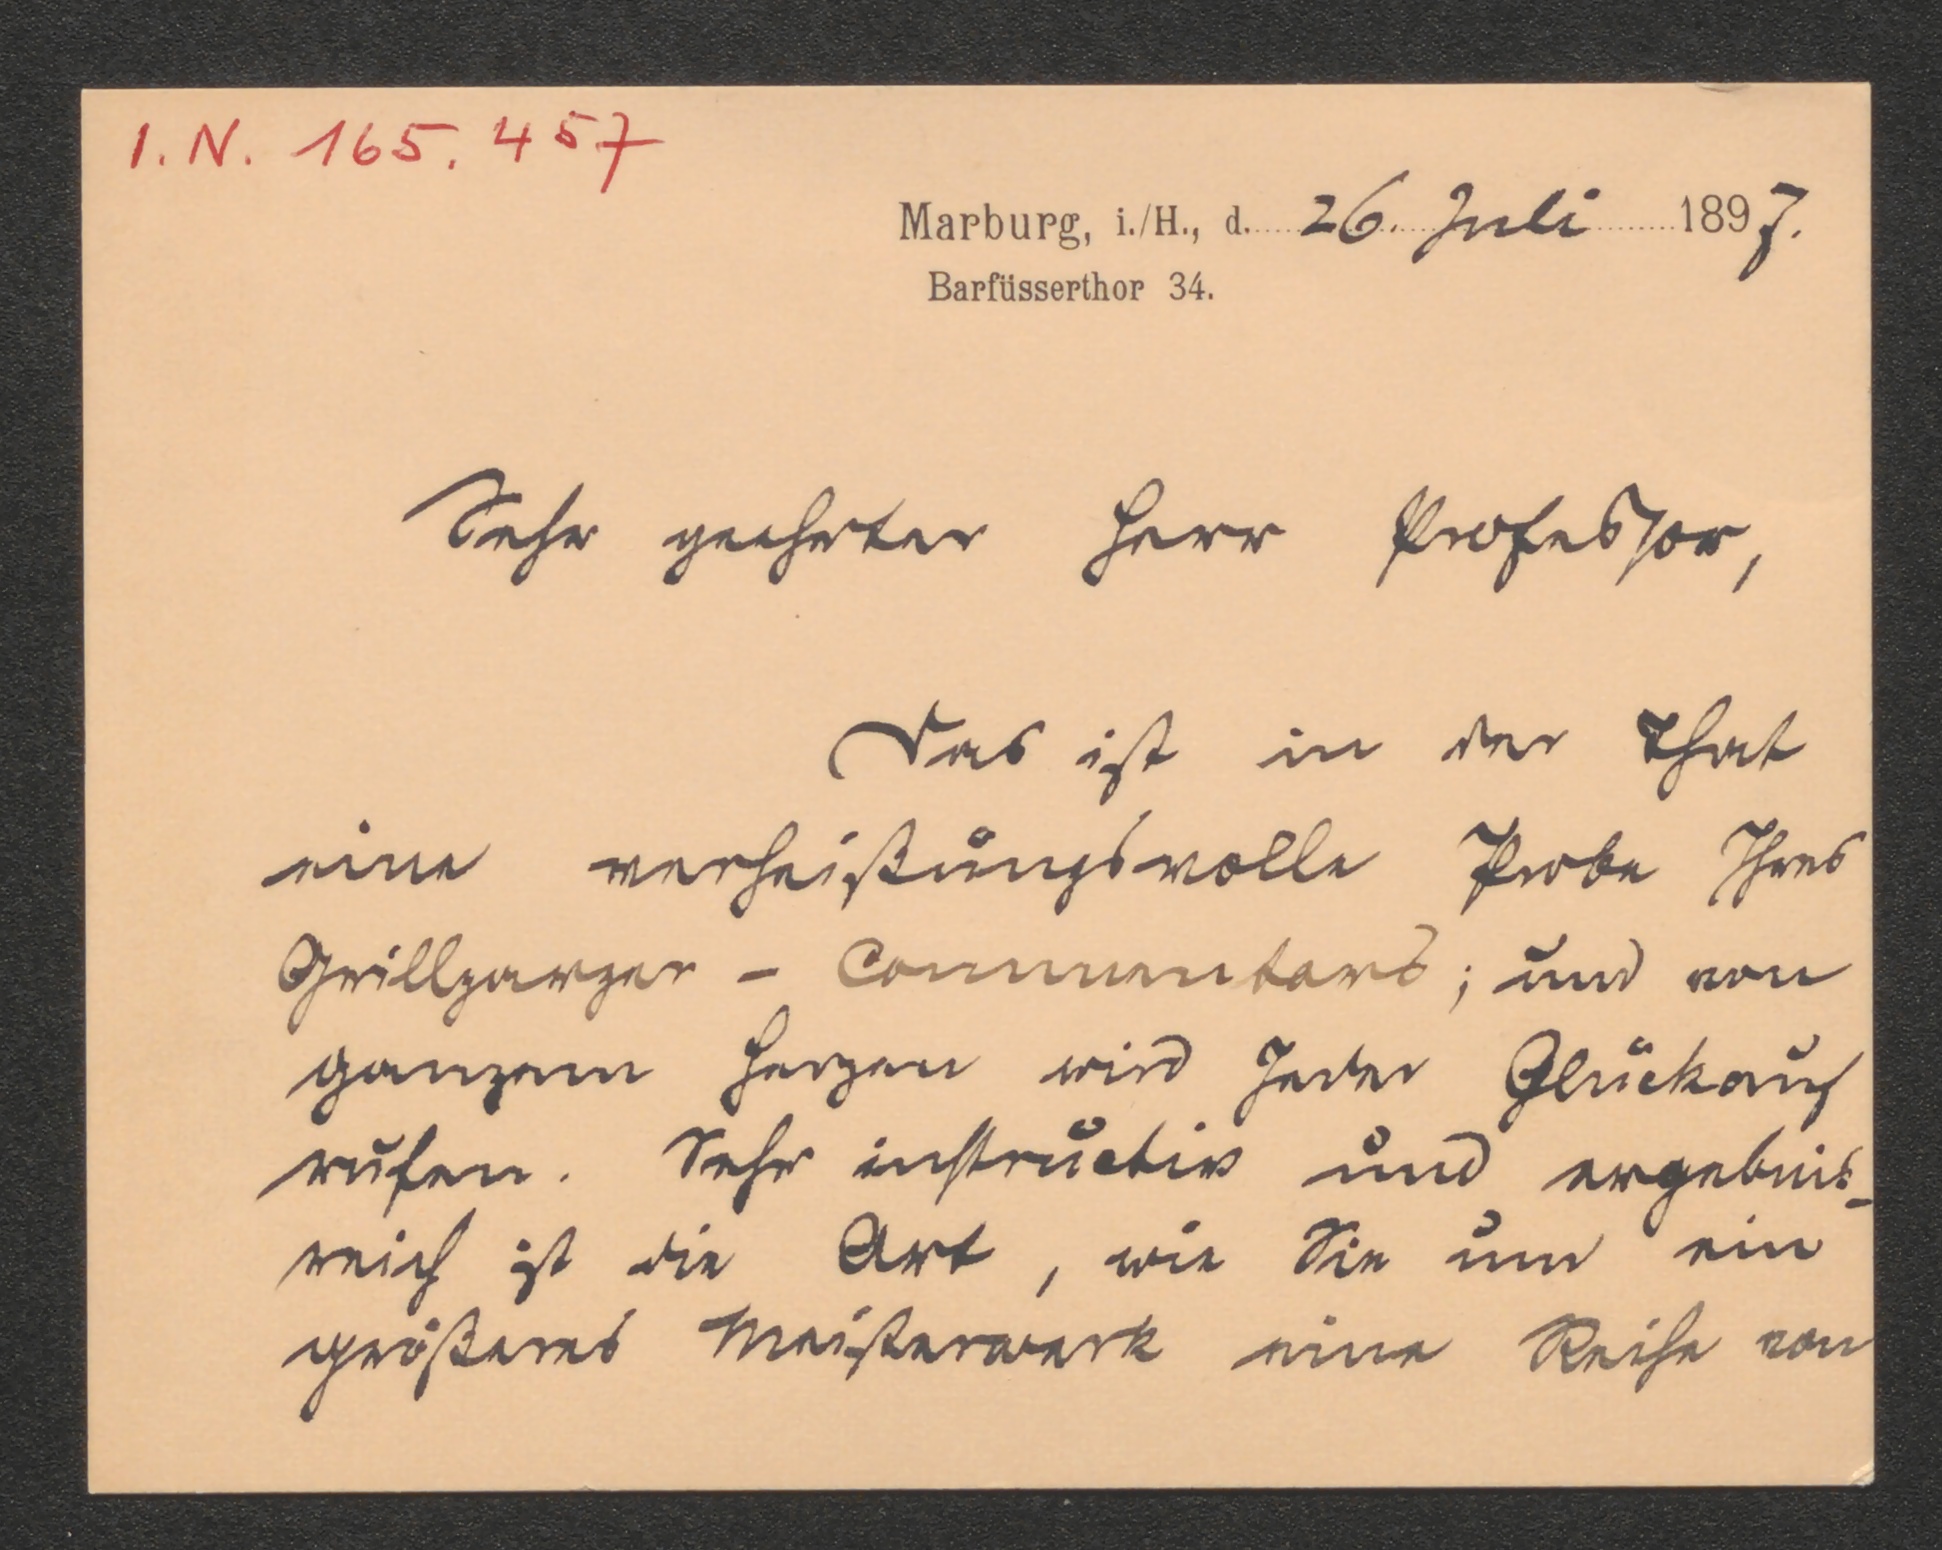 I.N. 165.457
Marburg, i./H., d. 26. Juli 1897.
Barfüsserthor 34.
Sehr geehrter Herr Professor,
Das ist in der That
eine verheißungsvolle Probe Ihres
Grillparzer - Commentars; und von
ganzem Herzen wird Jeder Glückauf
rufen. Sehr instructiv und ergebnis-
reich ist die Art, wie Sie um ein
größeres Meisterwerk eine Reihe von